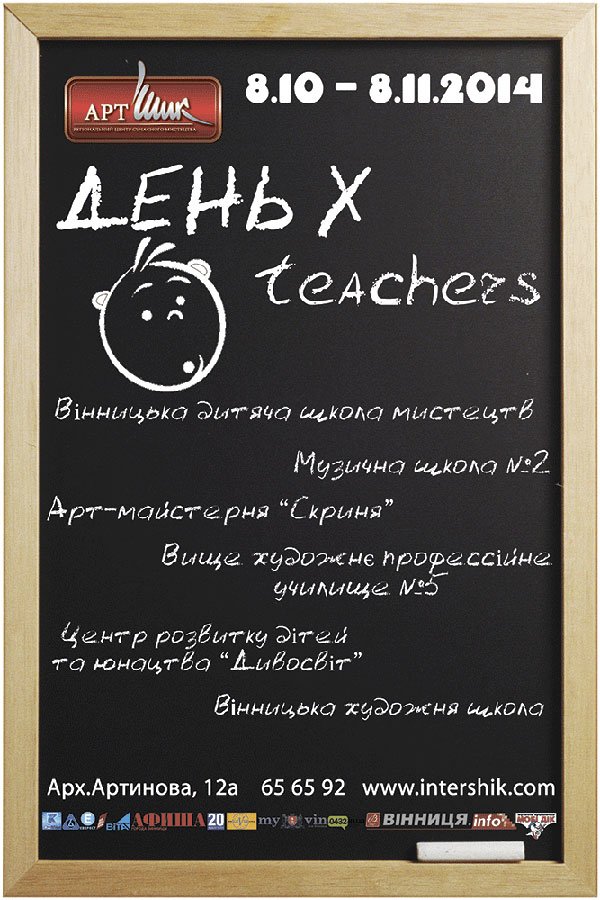 АРТ Шик
РЕГІОНАЛЬНИЙ ЦЕНТР СУЧАСНОГО МИСТЕЦТВА
8.10 – 8.11.2014
ДЕНЬ Х
teachers
Вінницька дитяча школа мистецтв
Музична школа №2
Арт-майстерня "Скриня"
Вище художнє профессійне
училище №5
Центр розвитку дітей
та юнацтва "Дивосвіт"
Вінницька художня школа
Арх.Артинова, 12а 65 65 92 www.intershik.com
ВІТА АФИША 20 my vin 0432 ВІННИЦЯ.info